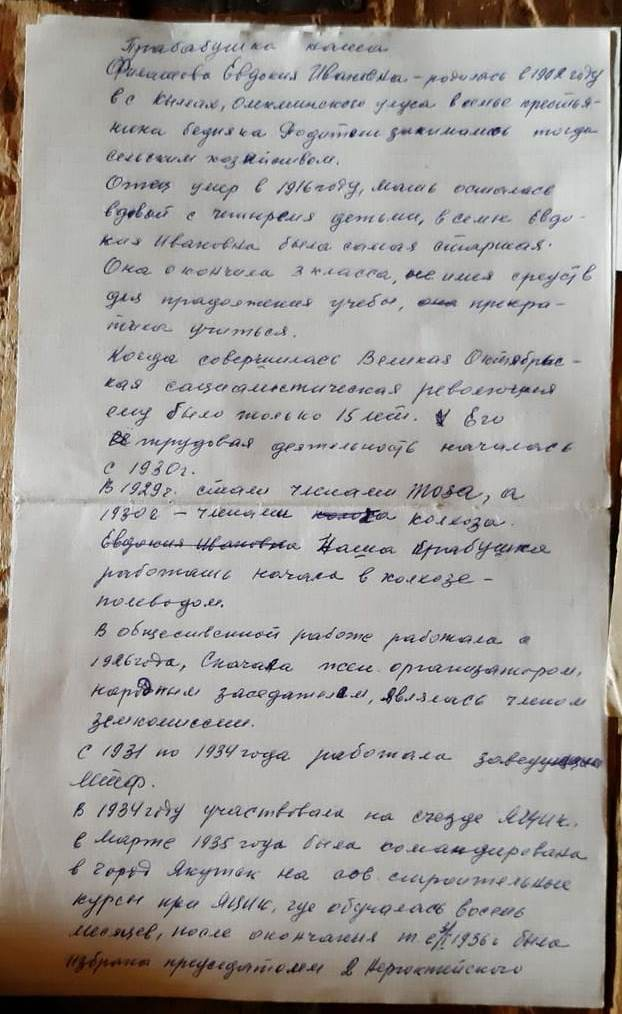 Прабабушка наша
Филатова Евдокия Ивановна - родилась в 1902 году
в с Кыллах, Олекминского улуса в семье крестья-
нина бедняка Родители занимались тогда
сельским хозяйством.
Отец умер в 1916 году, мать осталась
вдовой с четыремя детьми, в семье Евдо-
кия Ивановна была самая старшая.
Она окончила 3 класса, не имея средств
для продолжения учебы, она прекра-
тила учиться.
Когда совершилась Великая Октябрьс-
кая социалистическая революция
ему было только 15 лет. Его
трудовая деятельность началась
с 1930г.
В 1929г. стали членами Тоза, а
1930г - членами колхоза.
Евдокия Ивановна Наша прабушка
работать начала в колхозе -
полеводом.
В общественной работе работала с
1926 года, Сначала жен. организатором,
народным заседателем, являлась членом
земкомиссии.
С 1931 по 1934 года работала заведующей
МТФ.
В 1934 году участвовала на съезде ЯЦИК.
в марте 1935 года была командирована
в город Якутск на сов. строительные
курсы при ЯЦИК, где обучалась восемь
месяцев, после окончания 1936г была
избрана председателем 2 Нерюктейского